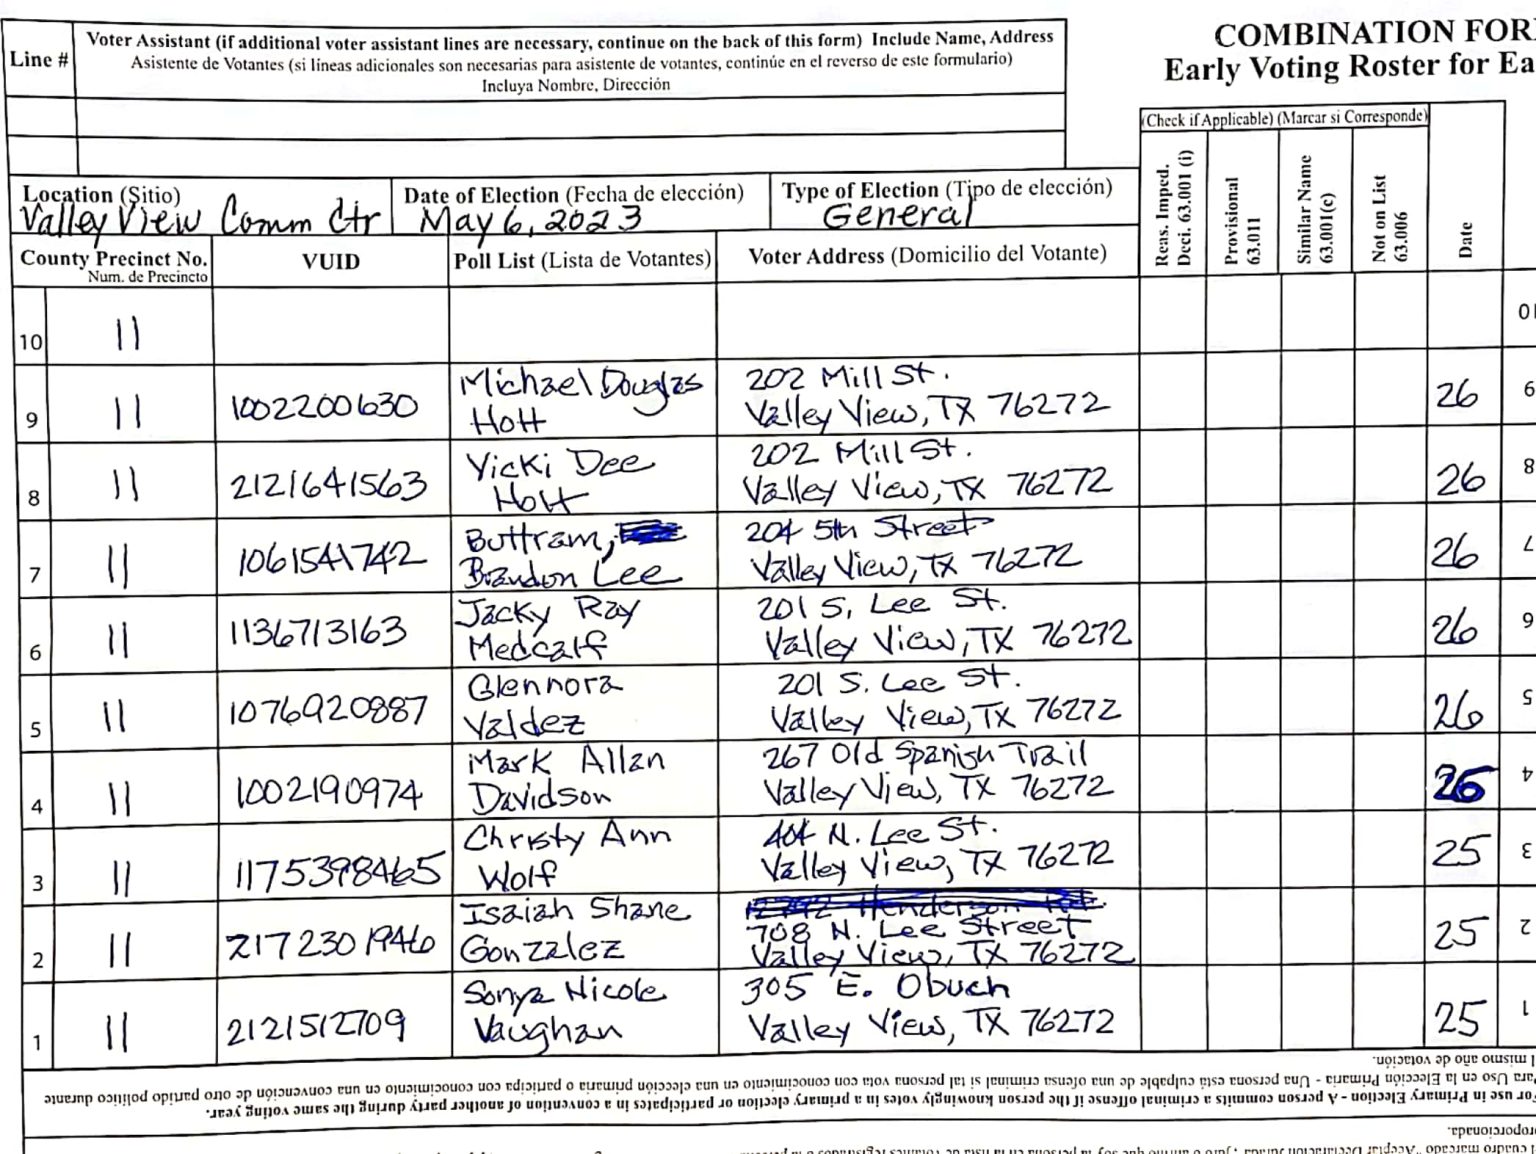 COMBINATION FOR
Early Voting Roster for Ea
Line #
Voter Assistant (if additional voter assistant lines are necessary, continue on the back of this form) Include Name, Address
Asistente de Votantes (si líneas adicionales son necesarias para asistente de votantes, continúe en el reverso de este formulario)
Incluya Nombre, Dirección
(Check if Applicable) (Marcar si Corresponde)
Reas. Imped.
Decl. 63.001 (i)
Provisional
63.011
Similar Name
63.001(c)
Not on List
63.006
Date
Location (Sitio)
Valley View Comm Ctr
Date of Election (Fecha de elección)
May 6, 2023
Type of Election (Tipo de elección)
General
County Precinct No.
Num. de Precincto
VUID
Poll List (Lista de Votantes)
Voter Address (Domicilio del Votante)
10 11 10
9 11 1002200630 Michael Douglas 202 Mill St. 26 9
Hott Valley View, TX 76272
8 11 2121641563 Vicki Dee 202 Mill St. 26 8
Hott Valley View, TX 76272
7 11 1061541742 Buttram, 204 5th Street 26 7
Brandon Lee Valley View, TX 76272
6 11 1136713163 Jacky Ray 201 S. Lee St. 26 6
Medcalf Valley View, TX 76272
5 11 1076920887 Glennora 201 S. Lee St. 26 5
Valdez Valley View, TX 76272
4 11 1002190974 Mark Allan 267 Old Spanish Trail 26 4
Davidson Valley View, TX 76272
3 11 1175398465 Christy Ann 404 N. Lee St. 25 3
Wolf Valley View, TX 76272
2 11 2172301946 Isaiah Shane Henderson 25 2
Gonzalez 708 N. Lee Street
Valley View, TX 76272
1 11 2121512709 Sonya Nicole 305 E. Obuch 25 1
Vaughan Valley View, TX 76272
l mismo año de votación.
Para Uso en la Elección Primaria - Una persona está culpable de una ofensa criminal si tal persona vota con conocimiento en una elección primaria o participa con conocimiento en una convención de otro partido político durante
For use in Primary Election - A person commits a criminal offense if the person knowingly votes in a primary election or participates in a convention of another party during the same voting year.
proporcionada.